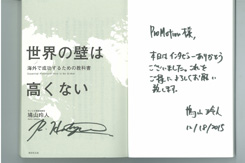 世界の壁は
高くない
海外で成功するための教科書
鳩山玲人
ProMotion 様,
本日はインタビューありがとう
ございました。これを
ご縁に、よろしくお願い
致します。
鳩山玲人
12/18/2015